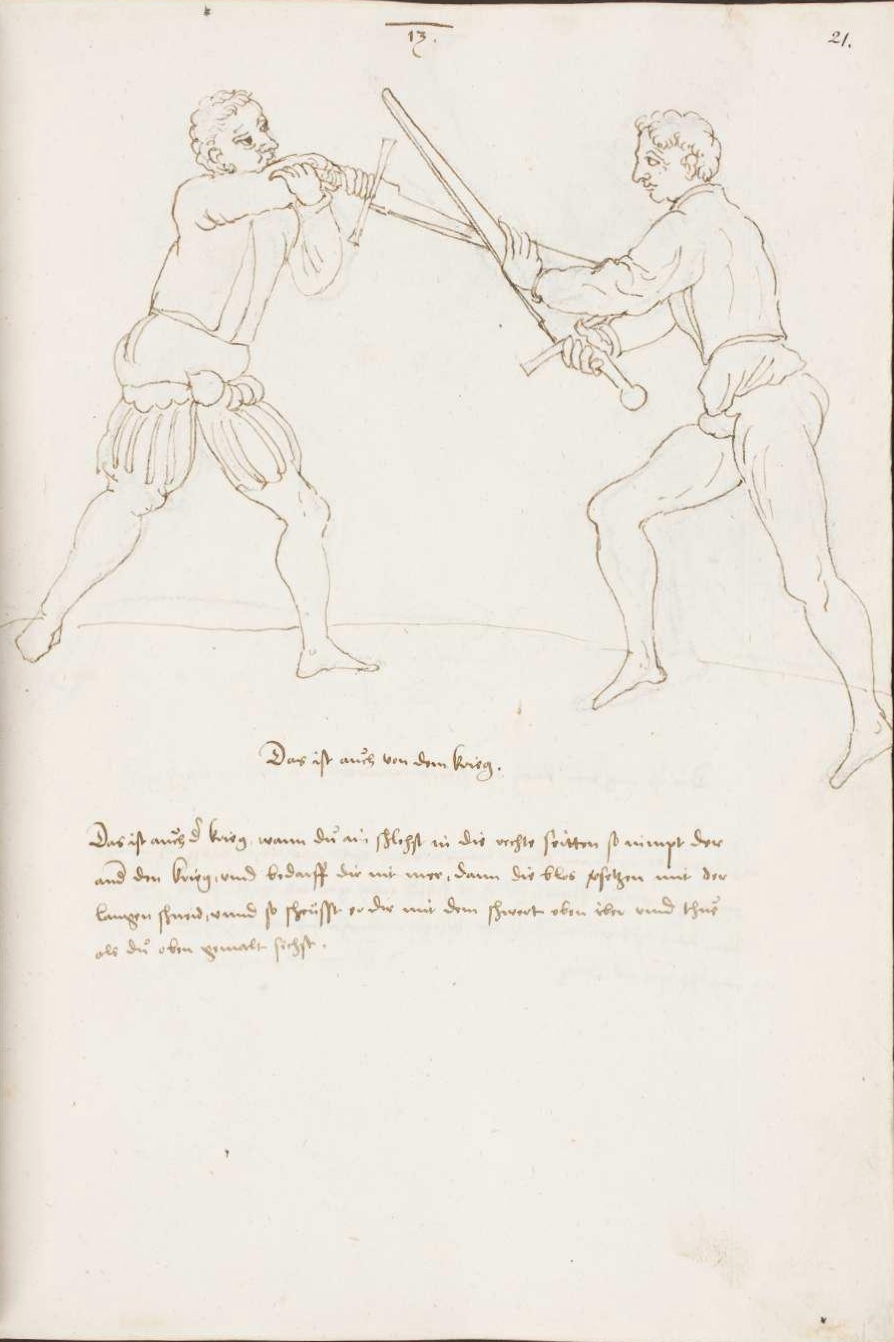 13.
21.
Das ist auch von dem krieg.
Das ist auch d krieg, wann du ain schlechst in die rechte seitten so nimpt der
and den krieg, und bedarff die nit mer, dann die blos versetzen mit der
langen schneid, unnd so scheusst er dir mit dem schwert oben über unnd thus
als du oben gemalt sichst.